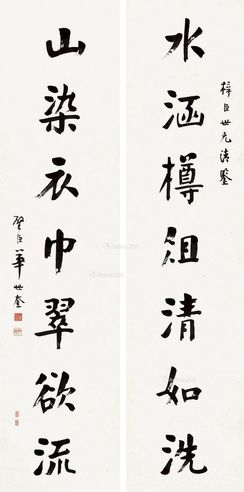 梓臣世兄清鉴
水涵樽俎清如洗
山染衣巾翠欲流
璧臣華世奎